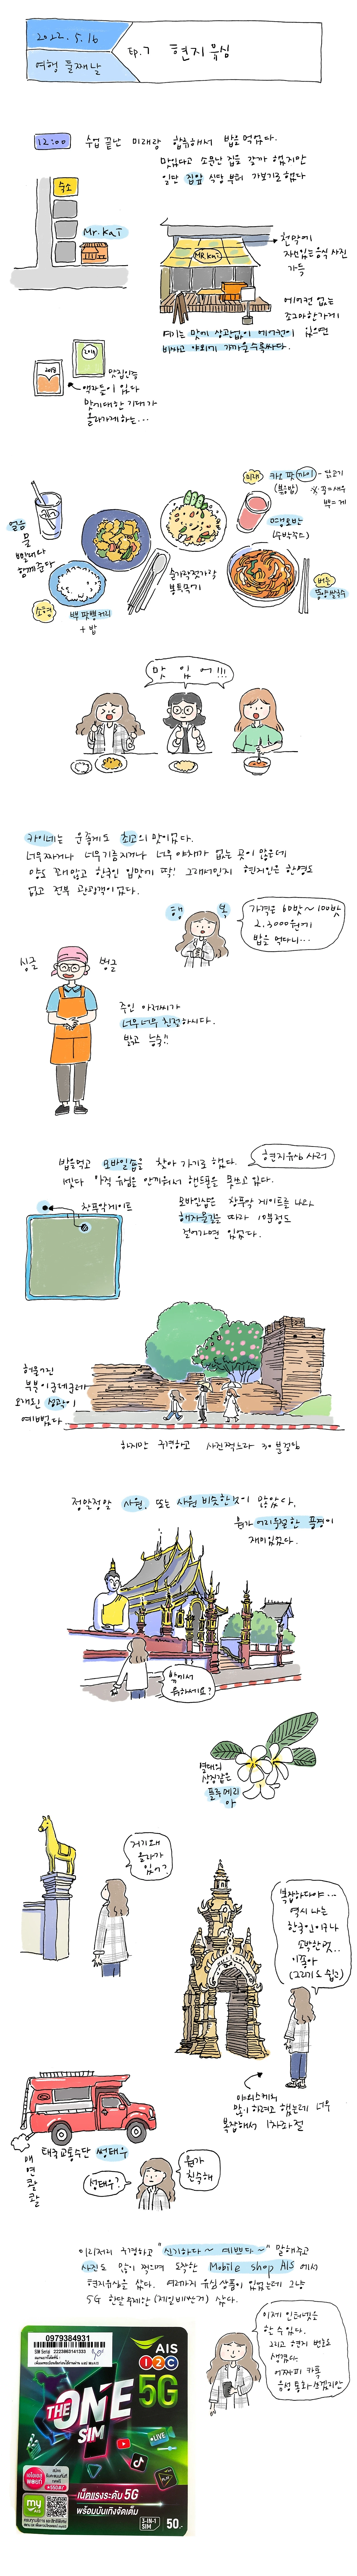 2022.5.16
여행 둘째날
EP.7 현지 유심
12:00
수업 끝난 미래랑 합류해서 밥을 먹었다.
맛있다고 소문난 집을 갈까 했지만
일단 집앞 식당 부터 가보기로 했다
숙소
Mr.Kai
MR.KAI
천막에
자신있는 음식 사진
가득
에어컨 없는
조그마한 가게
여기는 맛에 상관없이 에어컨이 있으면
비싸고 야외에 가까울수록 싸다.
2018
2019
맛집인증
액자들이 있다
맛에 대한 기대가
올라가게 하는...
얼음
물
빨대랑
함께준다
미래
카오 팟 까이 - 닭고기
(볶음밥)
땡모반
(수박주스)
숟가락 젓가락
뿌팟퐁커리
+ 밥
똠얌쌀국수
맛 있 어!!!
카이네는 운좋게도 최고의 맛이었다.
너무 짜거나 너무 기름지거나 너무 야채가 없는 곳이 많은데
양도 꽤 많고 한국인 입맛에 딱! 그래서인지 현지인은 한명도
없고 전부 관광객이었다.
행 복
가격은 60밧~100밧
2,3000원에
밥을 먹다니...
싱글 벙글
주인 아저씨가
너무너무 친절하시다.
밥먹고 모바일숍을 찾아 가기로 했다.
현지유심 사러
셋다 아직 유심을 안끼워서 핸드폰을 못쓰고 있다.
창푸악게이트
모바일샵은 창푸악 게이트를 나와
해자물길을 따라 10분정도
걸어가면 있었다.
허물어진
오래된 성곽이
예뻤다
하지만 구경하고 사진찍느라 30분걸림
정말정말 사원, 또는 사원 비슷한것이 많았다.
뭔가 어리둥절한 풍경이
재미있었다.
밖에서
뭐하세요?
열대의
상징같은
플루메리
아
거기 왜
올라가
있어?
복잡하다야...
역시 나는
한국인이구나
소박한 것..
이 좋아
(그리기도 쉽고)
야외스케치
많이 하려고 했는데 너무
복잡해서 1차좌절
매연콸콸
태국교통수단 썽태우
성태우?
뭔가
친숙해
이리저리 구경하고 "신기하다~ 예쁘다~" 말해주고
사진도 많이 찍으며 도착한 Mobile shop AIS 에서
현지유심을 샀다. 여러가지 유심 상품이 있었는데 그냥
5G 한달무제한 (제일비싼거) 샀다.
이제 인터넷을
할 수 있다.
그리고 현지 번호도
생겼다.
어차피 카톡
음성 통화 쓰겠지만
0979384931
AIS
12C
5G
THE ONE
SIM
LIVE
เน็ตแรงระดับ 5G
พร้อมบันเทิงจัดเต็ม
my
AIS
3-IN-1
SIM
50.-